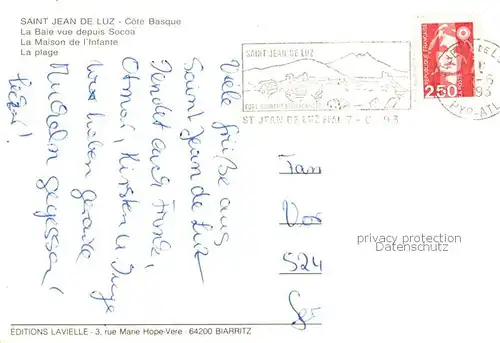 SAINT JEAN DE LUZ - Côte Basque
La Baie vue depuis Socoa
La Maison de l'Infante
La plage
SAINT JEAN DE LUZ
ST JEAN DE LUZ 7- 93
REPUBLIQUE FRANÇAISE
2,50
PYR-ATL
93
Viele Grüße aus
Saint Jean de Luz
sendet euch
Otmar, Kirsten u. Inga
wir haben gerade
Muscheln gegessen!
Fam
Vos
524
privacy protection
Datenschutz
ÉDITIONS LAVIELLE - 3, rue Marie Hope-Vere - 64200 BIARRITZ